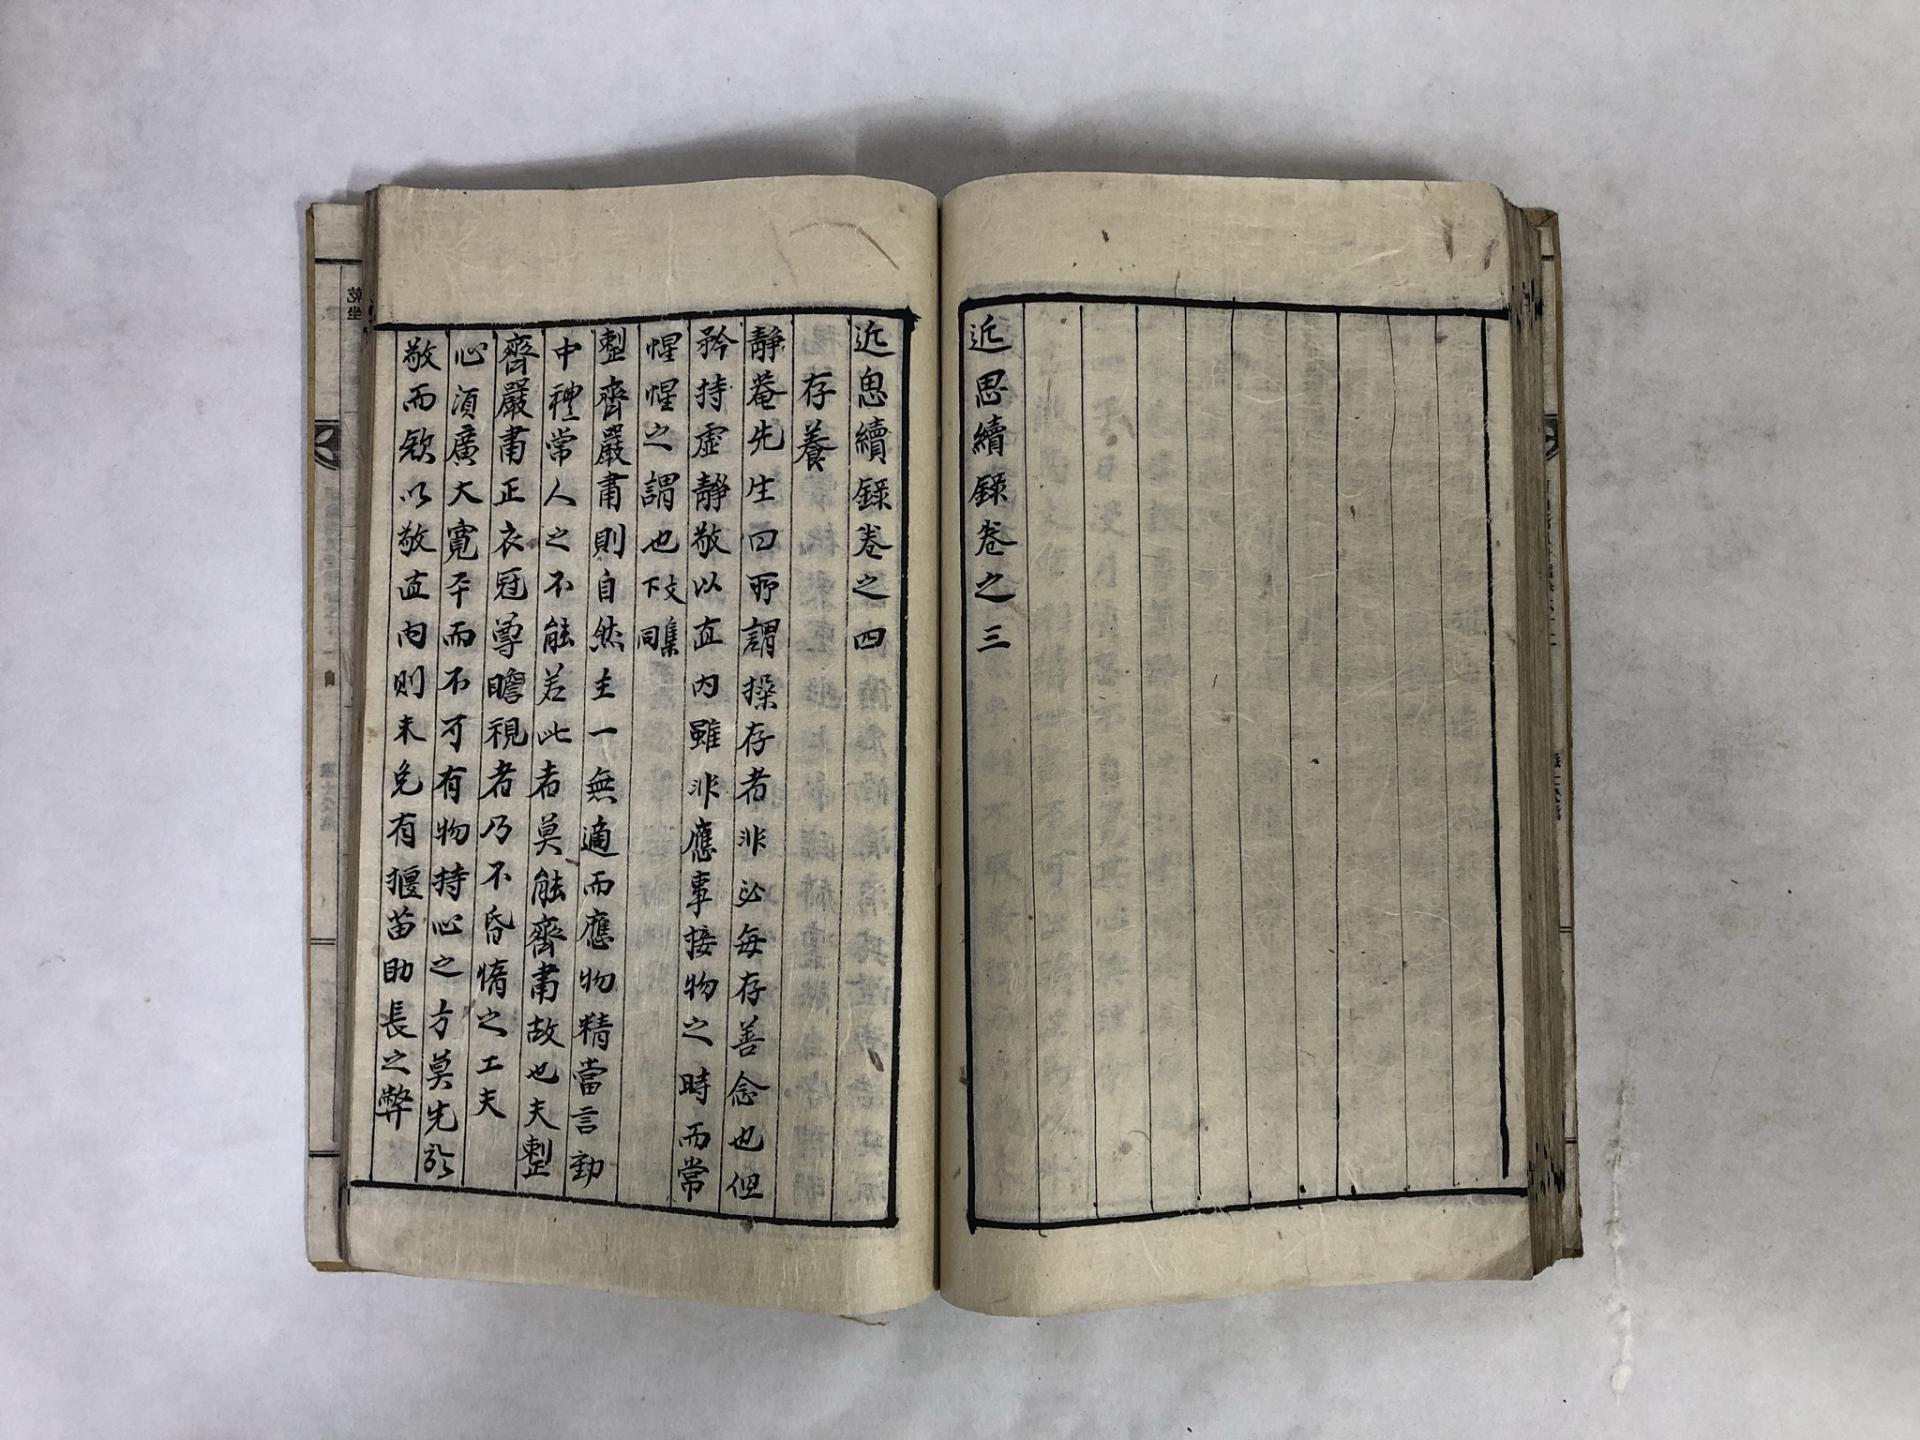 近思續錄卷之三
近思續錄卷之四
存養
靜菴先生曰所謂操存者非必每存善念也但
矜持虛靜敬以直内雖非應事接物之時而常
惺惺之謂也下同文集
整齊嚴肅則自然主一無適而應物精當言動
中禮常人之不能若此者莫能齊肅故也夫整
齊嚴肅正衣冠尊瞻視者乃不昏惰之工夫
心須廣大寬平而不可有物持心之方莫先於
敬而欲以敬直内則未免有揠苗助長之弊